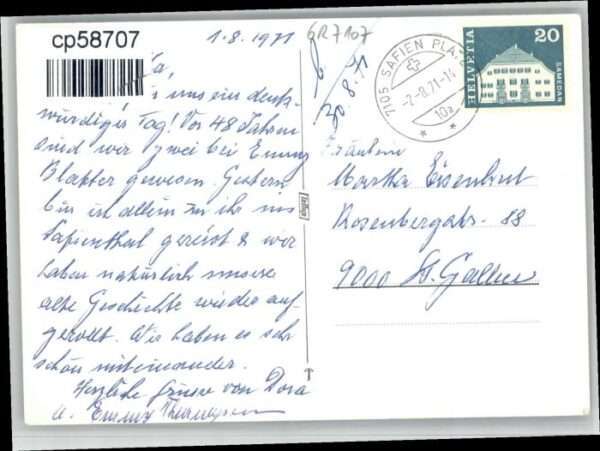 cp58707
1.8.1971
GR7107
8.71
7105 SAFIEN PLATZ
-2.-8.71-14
10a
HELVETIA
20
SAMEDAN
uns ein denk-
würdiger Tag! Vor 48 Jahren
sind wir zwei bei Emmy
gewesen. Gestern
bin ich allein zu ihr ins
Safienthal gereist & wir
haben natürlich unsere
alte Geschichte wieder auf-
gerollt. Wir haben es sehr
schön miteinander.
Herzliche Grüsse von Dora
u. Emmy
Fräulein
Martha Eisenhut
Rosenbergstr. 88
9000 St. Gallen